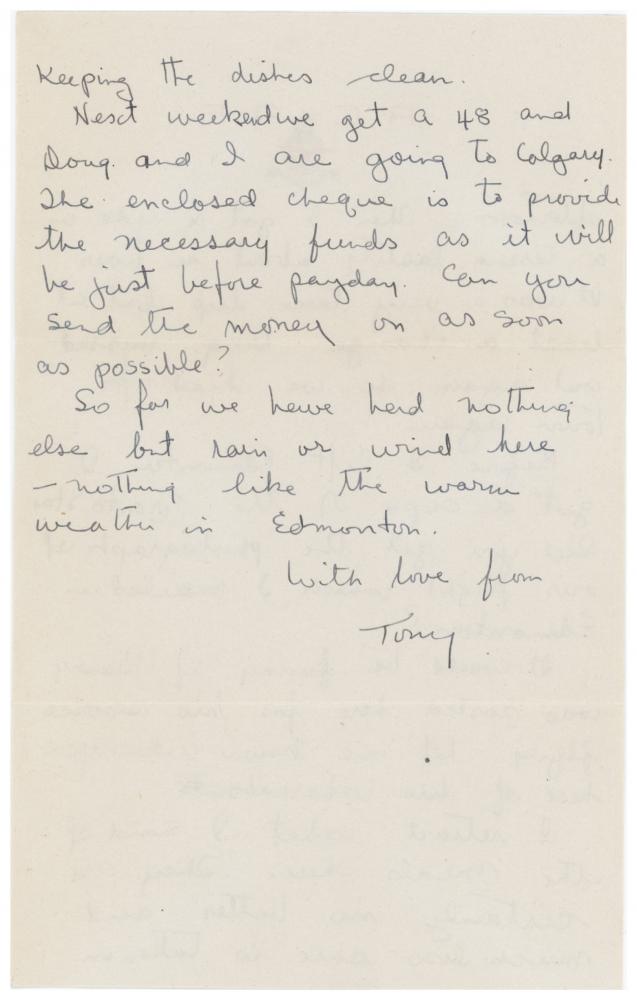 Keeping the dishes clean.
Next weekend we get a 48 and
Doug. and I are going to Calgary.
The enclosed cheque is to provide
the necessary funds as it will
be just before payday. Can you
send the money on as soon
as possible?
So far we have had nothing
else but rain or wind here
– nothing like the warm
weather in Edmonton.
With love from
Tony.